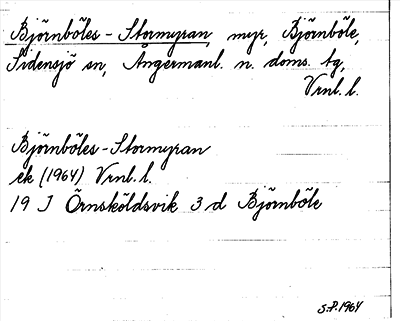 Björnböles-Stormyran, myr, Björnböle,
Sidensjö sn, Ångermanl. n. doms. tg,
Vrnl. l.
Björnböles-Stormyran
ek (1964) Vrnl. l.
19 J Örnsköldsvik 3 d Björnböle
S.P. 1964